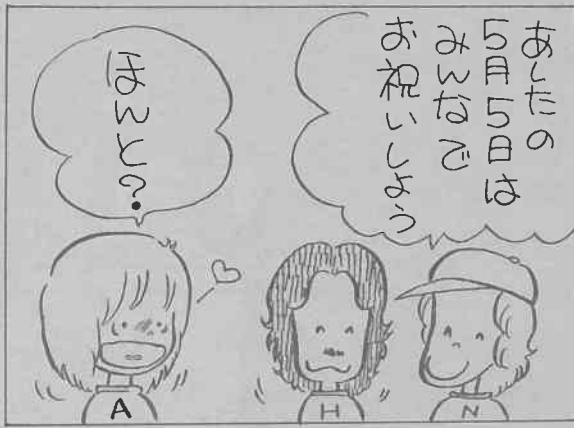 あしたの
5月5日は
みんなで
お祝いしよう
ほんと?
A
H
N